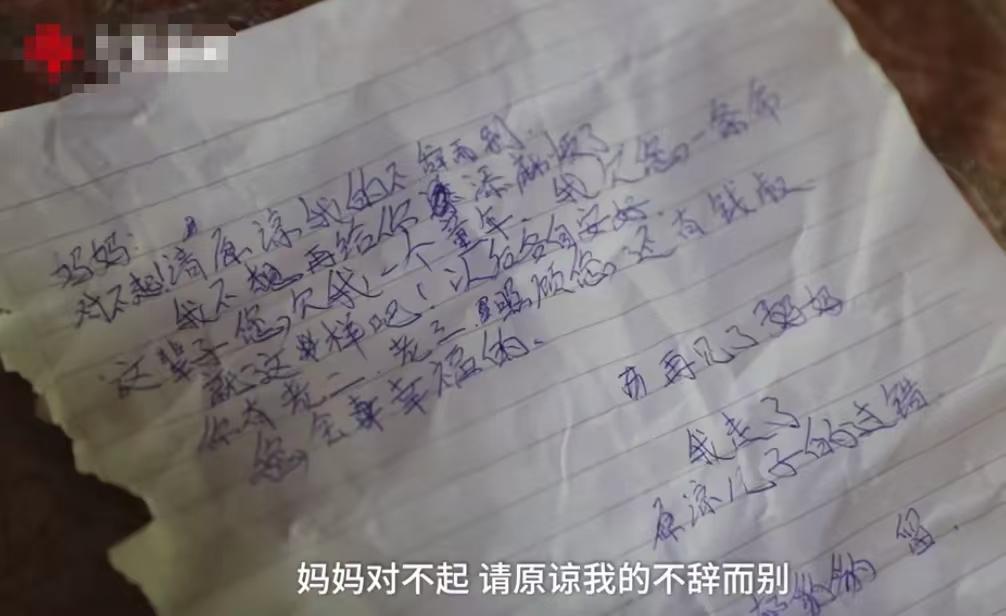 妈妈:
对不起请原谅我的不辞而别.
我不想再给你添麻烦了
这辈子您欠我一个童年.我欠您一条命
就这样吧!以后各自安好.
你有老二.老三.照顾您还有钱叔
您会幸福的.
再见了妈妈
我走了
原谅儿子的过错
留.
妈妈对不起 请原谅我的不辞而别